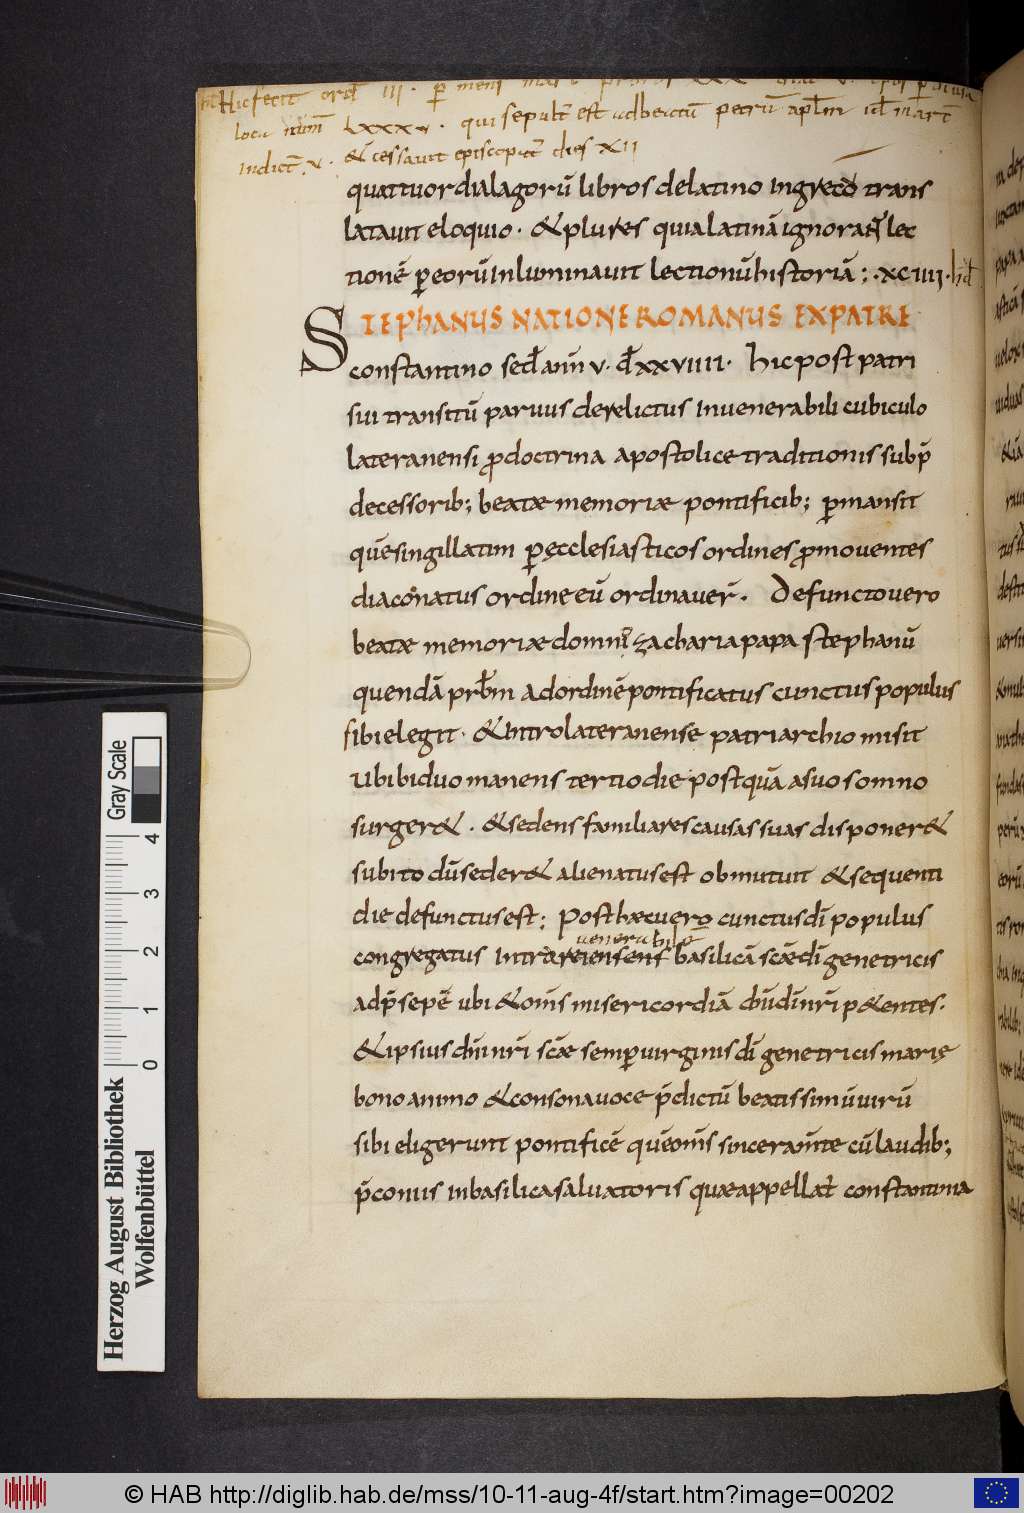 Hic fecit ord̄ III. p̄ mens mart
loca num̄ LXXXV. qui sepult̄ est ad beatū petrū ap̄lm id̄ mart̄
indict̄. v. & cessavit episcopat̄ dies XII
quattuor dialagorū libros delatino ingreco trans
latauit eloquio. & plures quia latinā ignorant lec
tionē p̄ eorū inluminauit lectionū historiā; .xciiii. hd̄
STEPHANUS NATIONE ROMANUS EX PATRE
constantino sed̄ ann̄ v. d̄ xxviiii. hic post patri
sui transitū paruus derelictus inuenerabili cubiculo
lateranensi p̄doctrina apostolice traditionis subp̄
decessorib; beatae memoriae pontificib; p̄mansit
quē singillatim p̄ ęcclesiasticos ordines p̄mouentes
diaconatus ordine eū ordinauer̄. Defuncto uero
beatae memoriae domni zacharia papa stephanū
quendā prb̄m adordinē pontificatus cunctus populus
sibi elegit. & intro lateranense patriarchio misit
Ubi biduo manens tertio die postquā asuo somno
surger& . & sedens familiares causas suas disponer&
subito dū seder& alienatus est obmutuit & sequenti
die defunctus est; Post haec uero cunctus dī populus
uenerabilē
congregatus intra eiensens basilicā scāe dī genetricis
adp̄sepē ubi & om̄s misericordiā dn̄i dī nr̄i p&entes.
& ipsius dn̄i nr̄i scāe semper uirginis dī genetricis marię
bono animo & consona uoce p̄dictū beatissimū uirū
sibi eligerunt pontificē quē om̄s sincera mn̄te cū laudib;
p̄conus inbasilica saluatoris quae appellat̄ constantina
Gray Scale
0 1 2 3 4
Herzog August Bibliothek
Wolfenbüttel
© HAB http://diglib.hab.de/mss/10-11-aug-4f/start.htm?image=00202